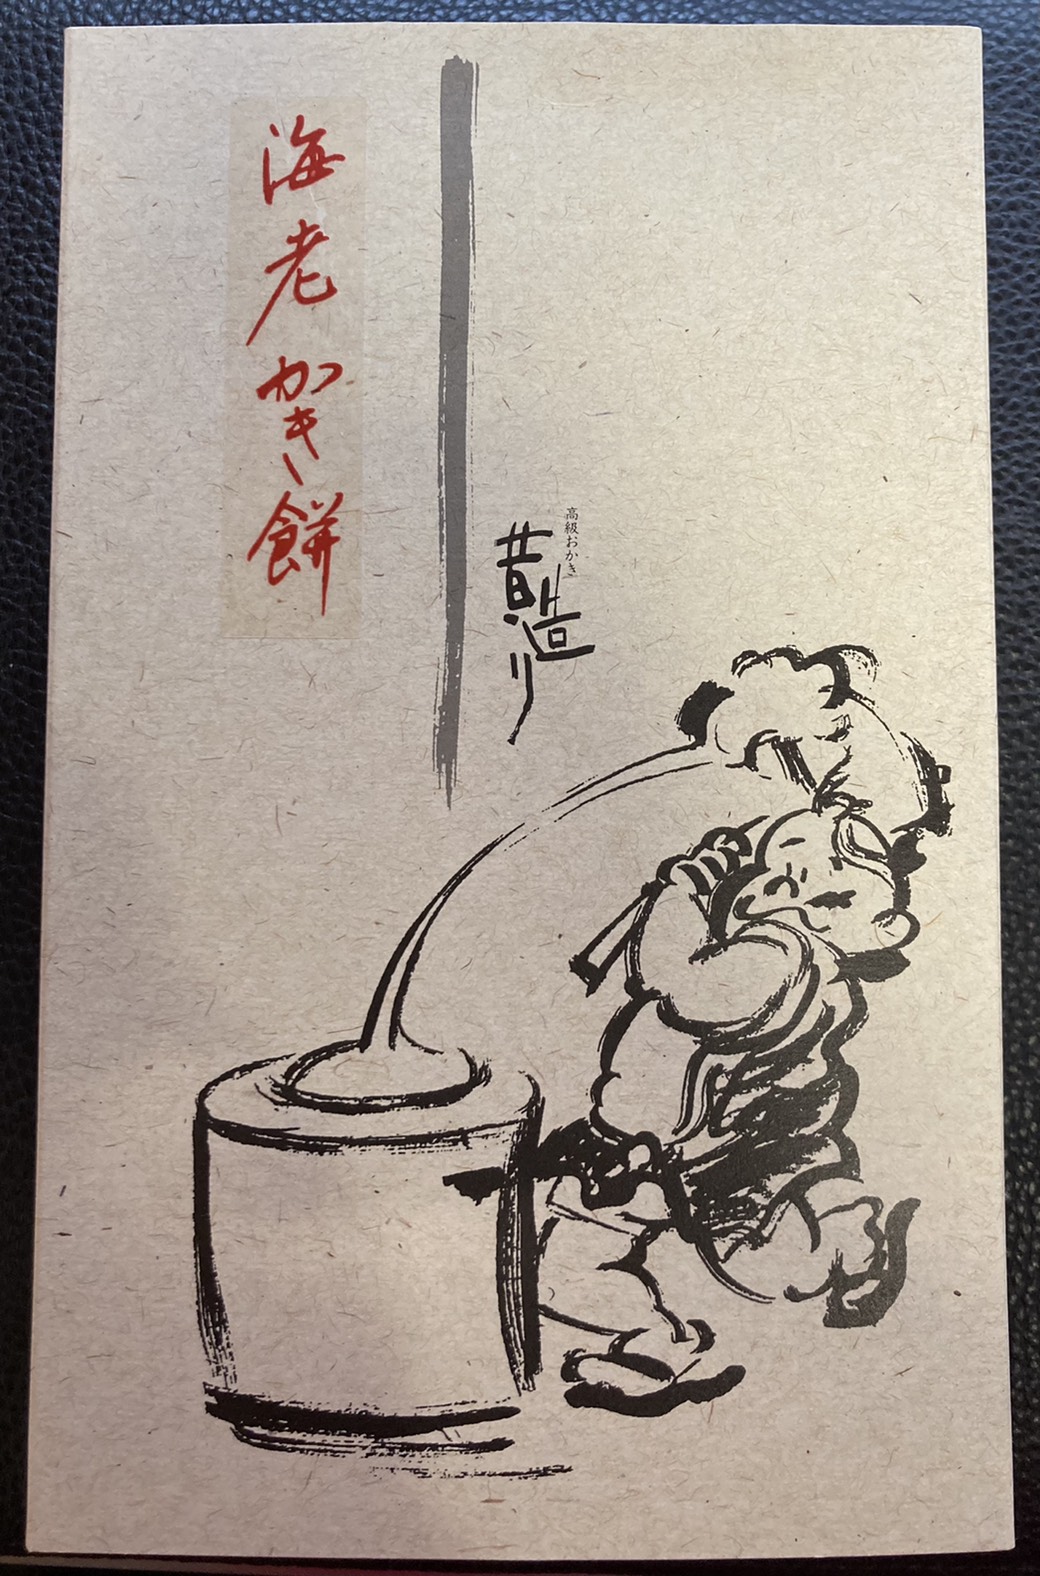 高級おかき
昔造り
海老かき餅